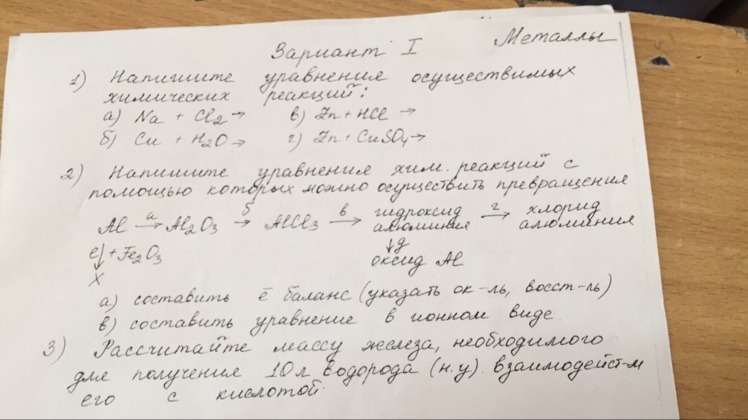 Вариант I Металлы
1) Напишите уравнения осуществимых
химических реакций:
а) Na + Cl₂ → в) Zn + HCl →
б) Cu + H₂O → г) Zn + CuSO₄ →
2) Напишите уравнения хим. реакций с
помощью которых можно осуществить превращения
Al а→ Al₂O₃ б→ AlCl₃ в→ гидроксид алюминия г→ хлорид алюминия
е↓ + Fe₂O₃ ↓д
X оксид Al
а) составить ē баланс (указать ок-ль, восст-ль)
в) составить уравнение в ионном виде
3) Рассчитайте массу железа, необходимого
для получение 10 л водорода (н.у). взаимодейст-м
его с кислотой